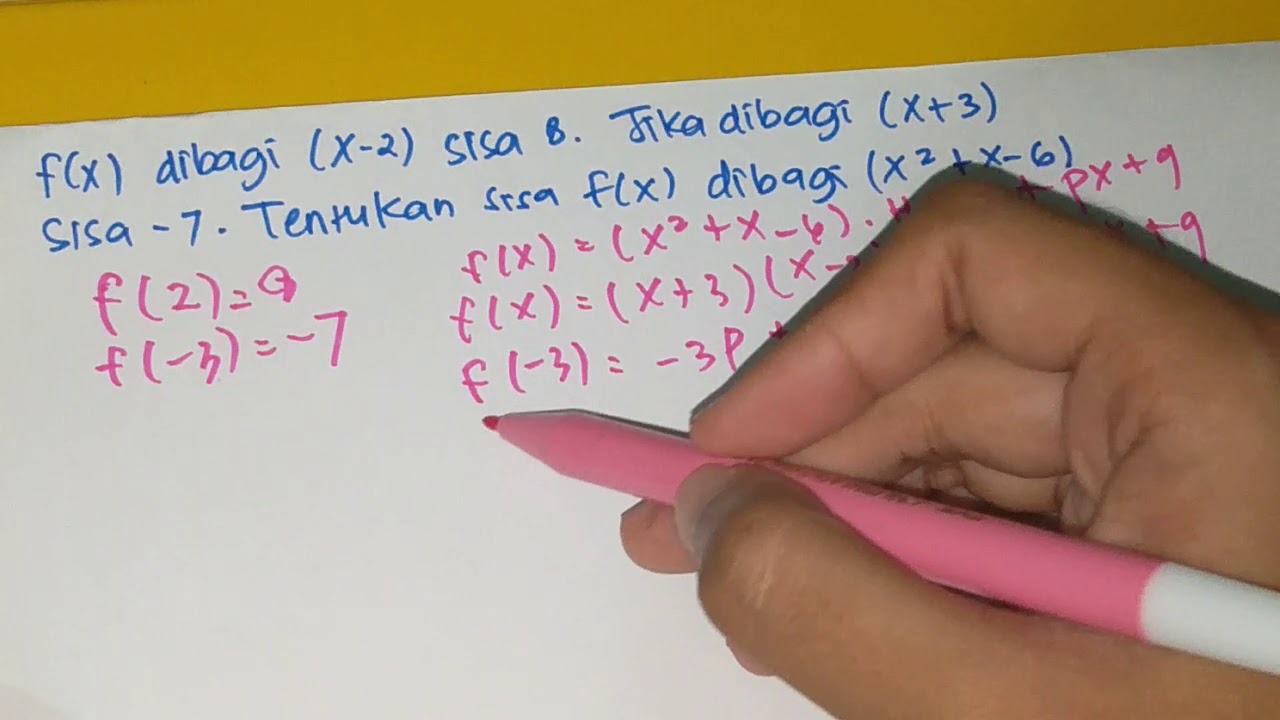 f(x) dibagi (x-2) sisa 8. Jika dibagi (x+3)
sisa -7. Tentukan sisa f(x) dibagi (x²+x-6)
f(2)=
f(-3)=-7
f(x) = (x²+x-6). + px+q
f(x) = (x+3)(x- +q
f(-3) = -3p